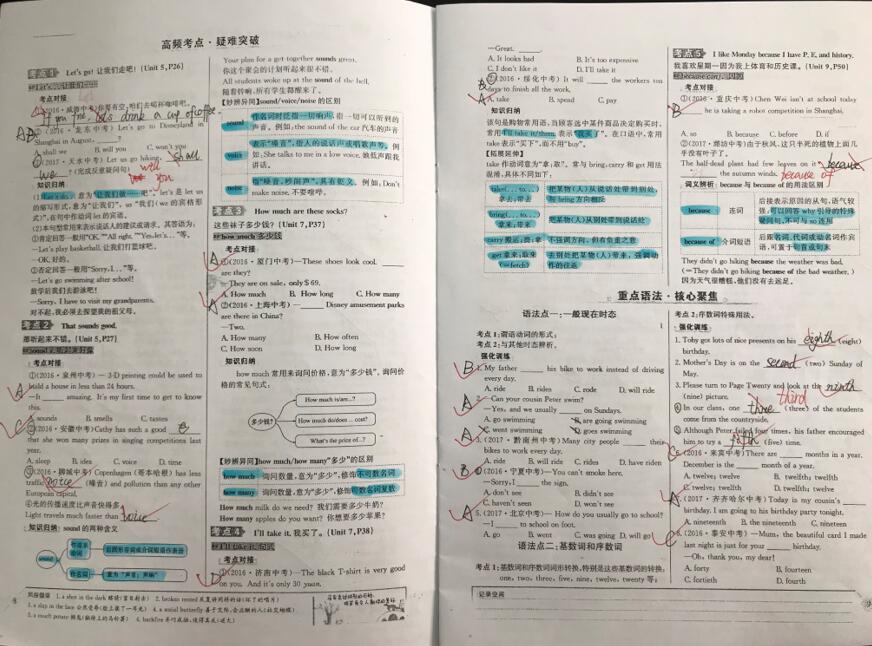 高频考点·疑难突破
考点1 Let's go! 让我们走吧！(Unit 5,P26)
考点对接
If you free, let's drink a cup of coffee
②(2016·龙东中考)Let's go to Disneyland in
Shanghai in August,
A. shall we B. will you C. won't you
③(2017·天水中考)Let us go hiking,
shall
we ?(完成反意疑问句) will you
知识归纳
—Let's play basketball. 让我们打篮球吧。
—OK. 好的。
②否定回答一般用"Sorry,I…"等。
—Let's go swimming after school!
放学后我们去游泳吧！
—Sorry, I have to visit my grandparents.
对不起,我必须去探望我的祖父母。
考点2 That sounds good.
那听起来不错。(Unit 5,P27)
考点对接
①(2016·泉州中考)—3-D printing could be used to
build a house in less than 24 hours.
—It amazing. It's my first time to get to know
this.
A. sounds B. smells C. tastes
②(2016·安徽中考)Cathy has such a good
that she won many prizes in singing competitions last
year.
A. sleep B. idea C. voice D. time
Copenhagen (哥本哈根) has less
traffic noice (噪音) and pollution than any other
European capital.
④光的传播速度比声音快得多。
Light travels much faster than voice
知识归纳 sound 的两种含义
sound
Your plan for a get together sounds great.
你这个聚会的计划听起来很不错。
All students woke up at the sound of the bell.
随着铃响,所有学生都醒来了。
【妙辨异同】sound/voice/noise 的区别
sound
voice
noise
考点3 How much are these socks?
这些袜子多少钱？(Unit 7,P37)
how much 多少钱
考点对接
①(2016·厦门中考)—These shoes look cool.
are they?
—They are on sale, only $ 69.
A. How much B. How long C. How many
②(2016·上海中考)— Disney amusement parks
are there in China?
—Two.
A. How many B. How often
C. How soon D. How long
知识归纳
how much 常用来询问价格,意为"多少钱"。询问价
格的常见句式:
多少钱?
How much is/are...?
How much do/does ... cost?
What's the price of...?
【妙辨异同】how much/how many"多少"的区别
how much 询问数量,意为"多少",修饰不可数名词
how many 询问数量,意为"多少",修饰可数名词复数
How much milk do we need? 我们需要多少牛奶?
How many apples do you want? 你想要多少苹果?
考点4 I'll take it. 我买了。(Unit 7,P38)
考点对接
①(2016·济南中考)—The black T-shirt is very good
on you. And it's only 30 yuan.
—Great.
A. It looks bad B. It's too expensive
C. I don't like it D. I'll take it
②(2016·绥化中考)It will the workers ten
days to finish all the work.
A. take B. spend C. pay
知识归纳
该句是购物常用语,当顾客选中某件商品决定购买时,
常用 I'll take it/them. 表示"我买了"。在口语中,常用
take 表示"买下",而不用"buy"。
【拓展延伸】
take 作动词意为"拿;取"。常与 bring,carry 和 get 用法
混淆,具体不同如下:
take(…to…)
拿去;带去
把某物(人)从说话处带到别处,
与 bring 方向相反
bring(…to…)
拿来;带来
把某物(人)从别处带到说话处
carry 搬运;提;拿
不强调方向,但有负重之意
get 拿来;取来
(=fetch)
去别处把某物(人)带来,强调动
作的往返
考点5 I like Monday because I have P. E. and history.
我喜欢星期一因为我上体育和历史课。(Unit 9,P50)
考点对接
①(2016·重庆中考)Chen Wei isn't at school today
he is taking a robot competition in Hong Kong.
A. so B. because C. before D. if
②(2017·潍坊中考)由于秋风,这只半死的植物上面几
乎没有叶子了。
The half-dead plant had few leaves on it because
because of
the autumn winds.
词义辨析: because 与 because of 的用法区别
because 连词
后接表示原因的从句,语气较
强,可以回答 why 引导的特殊
疑问句,不可与 so 连用
because of 介词短语
后跟名词、代词或动名词作宾
语,可置于句首或句末
They didn't go hiking because the weather was bad.
(=They didn't go hiking because of the bad weather.)
因为天气很糟糕,他们没有去远足。
重点语法·核心聚焦
语法点一:一般现在时态
考点1:谓语动词的形式;
考点2:与其他时态辨析。
强化训练
1. My father his bike to work instead of driving
every day.
A. ride B. rides C. rode D. will ride
2. —Can your cousin Peter swim?
—Yes, and he usually on Sundays.
A. go swimming B. are going swimming
C. went swimming D. goes swimming
3. (2017·黔南州中考)Many city people their
bikes to work every day.
A. ride B. will ride C. rides D. have ridden
4. (2016·宁夏中考)—You can't smoke here.
—Sorry, I the sign.
A. don't see B. didn't see
C. haven't seen D. won't see
5. (2017·北京中考)—How do you usually go to school?
—I to school on foot.
A. go B. went C. was going D. will go
语法点二:基数词和序数词
考点1:基数词和序数词词形转换,特别是这些基数词的转换:
one, two, three, five, nine, twelve, twenty 等;
考点2:序数词特殊用法。
强化训练
1. Toby got lots of nice presents on his eighth (eight)
birthday.
2. Mother's Day is on the second (two) Sunday of
May.
3. Please turn to Page Twenty and look at the ninth
(nine) picture.
third
4. In our class, one three (three) of the students
come from the countryside.
5. Although Peter failed four times, his father encouraged
him to try a fifth (five) time.
6. (2016·莱芜中考)There are months in a year.
December is the month of a year.
A. twelve; twelve B. twelve; twelfth
C. twelve; twelfth D. twelfth; twelve
7. (2017·齐齐哈尔中考)Today is my cousin's
birthday. I am going to his birthday party tonight.
A. nineteenth B. the nineteenth C. nineteen
8. (2016·泰安中考)—Mum, the beautiful card I made
last night is just for your birthday.
—Oh, thank you, my dear!
A. forty B. fourteen
C. fortieth D. fourth
记录空间